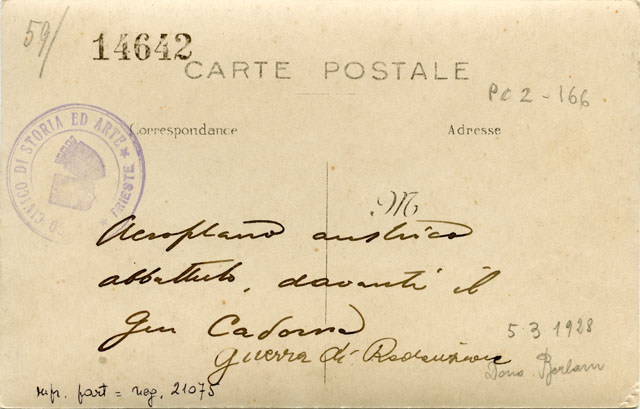 59/
14642
CARTE POSTALE
PC 2 - 166
Correspondance
Adresse
CIVICO DI STORIA ED ARTE * TRIESTE *
M
Aeroplano austriaco
abbattuto, davanti il
Gen Cadorna
Guerra di Redenzione
5.3.1928
Dono Berlam
ripr. fart = neg. 21075